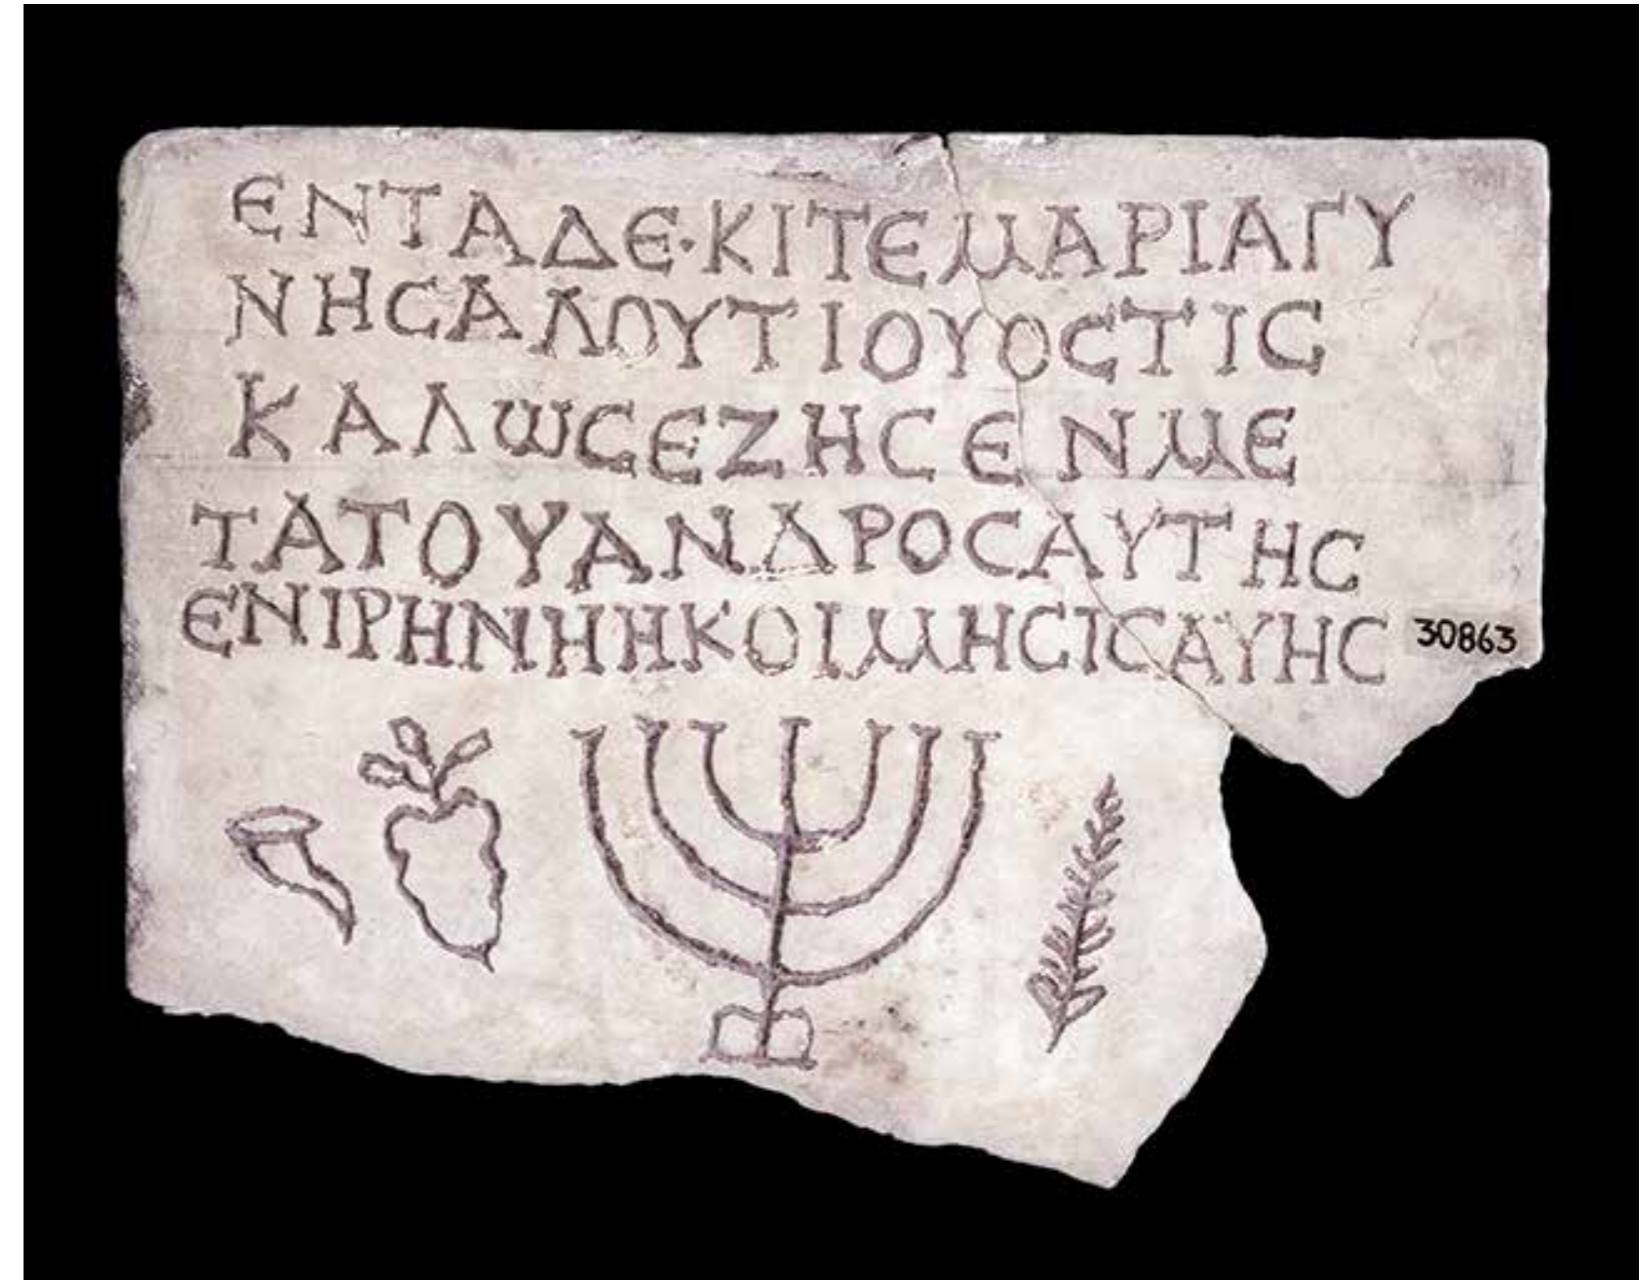 ΕΝΤΑΔΕ·ΚΙΤΕΜΑΡΙΑΓΥ
ΝΗϹΑΛΟΥΤΙΟΥΟϹΤΙϹ
ΚΑΛΩϹΕΖΗϹΕΝΜΕ
ΤΑΤΟΥΑΝΔΡΟϹΑΥΤΗϹ
ΕΝΙΡΗΝΗΗΚΟΙΜΗϹΙϹΑΥΗϹ
30863